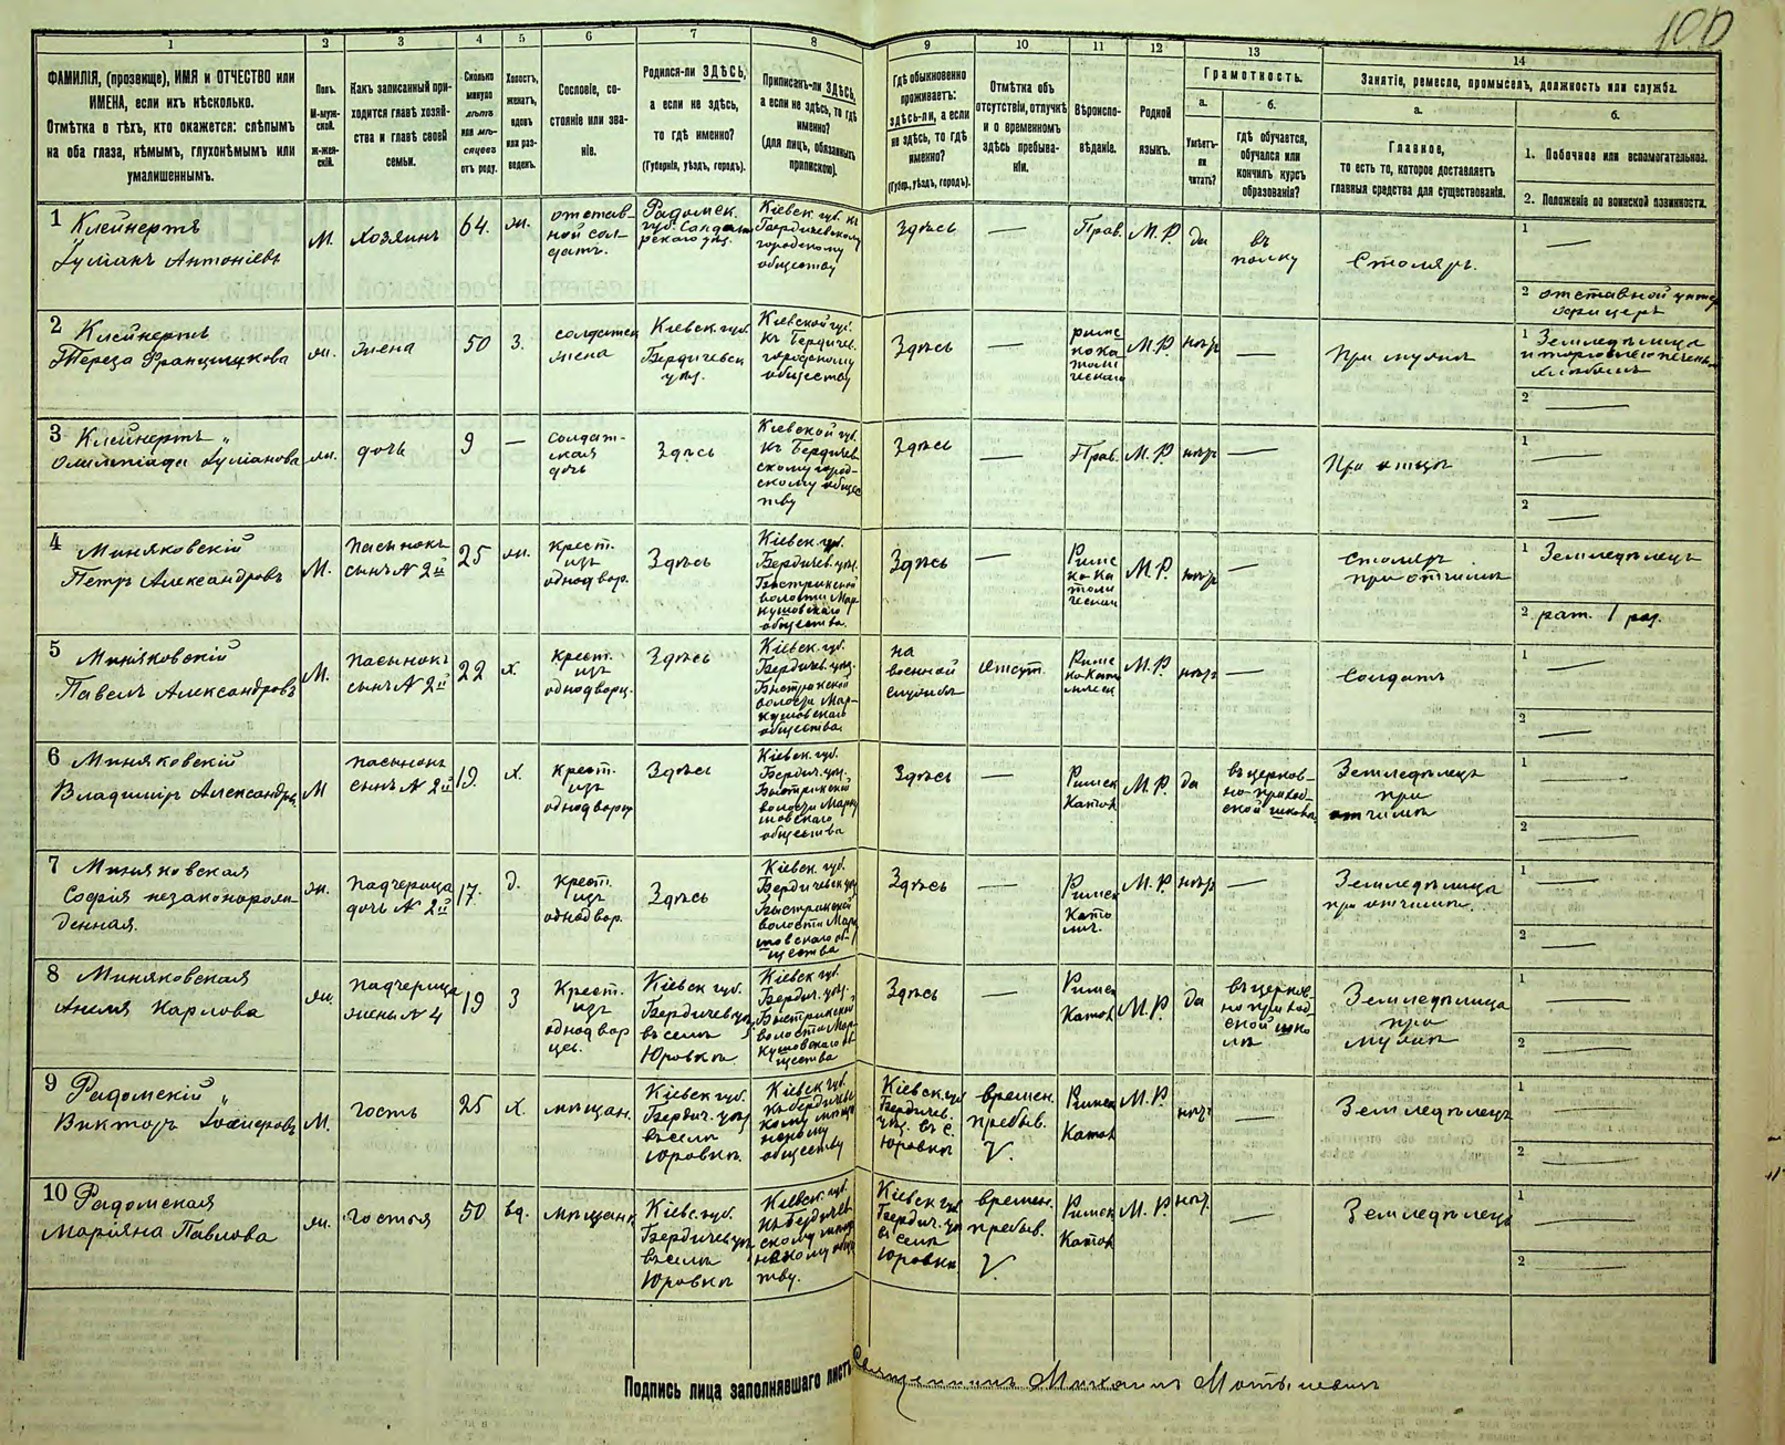 100
1 2 3 4 5 6 7 8 9 10 11 12 13 14
ФАМИЛІЯ, (прозвище), ИМЯ и ОТЧЕСТВО или
ИМЕНА, если ихъ нѣсколько.
Отмѣтка о тѣхъ, кто окажется: слѣпымъ
на оба глаза, нѣмымъ, глухонѣмымъ или
умалишеннымъ.
Полъ.
М-муж-
ской.
Ж-жен-
скій.
Какъ записанный при-
ходится главѣ хозяй-
ства и главѣ своей
семьи.
Сколько
минуло
лѣтъ
или мѣ-
сяцевъ
отъ роду.
Холостъ,
женатъ,
вдовъ
или раз-
веденъ.
Сословіе, со-
стояніе или зва-
ніе.
Родился-ли ЗДѢСЬ,
а если не здѣсь,
то гдѣ именно?
(Губернія, уѣздъ, городъ).
Приписанъ-ли ЗДѢСЬ,
а если не здѣсь, то гдѣ
именно?
(для лицъ, обязанныхъ
припискою).
Гдѣ обыкновенно
проживаетъ:
здѣсь-ли, а если
не здѣсь, то гдѣ
именно?
(Губер., уѣздъ, городъ).
Отмѣтка объ
отсутствіи, отлучкѣ
и о временномъ
здѣсь пребыва-
ніи.
Вѣроиспо-
вѣданіе.
Родной
языкъ.
Грамотность.
а.
Умѣетъ-
ли
читать?
б.
гдѣ обучается,
обучался или
кончилъ курсъ
образованія?
Занятіе, ремесло, промыселъ, должность или служба.
а.
Главное,
то есть то, которое доставляетъ
главныя средства для существованія.
б.
1. Побочное или вспомогательное.
2. Положеніе по воинской повинности.
1 Клейнертъ
Антоніевъ
М.
хозяинъ
64.
ж.
отстав-
ной сол-
датъ.
Радомск.
губ.
Кіевск. губ. къ
Бердичевскому
городскому
обществу
здѣсь
—
Прав.
М.Р.
да
въ
полку
Столяръ.
1 —
2 отставной унтер
офицеръ
2 Клейнертъ
Тереза Францишкова
ж.
жена
50
З.
солдатск
жена
Кіевск. губ.
Бердичевск
уѣз.
Кіевской губ.
къ Бердичев.
городскому
обществу
Здѣсь
—
римс
ко ка
толи
ческаго
М.Р.
нѣтъ
—
При мужѣ
1 Земледѣлица
и торговлею печен
хлѣбомъ
2 —
3 Клейнертъ
Олимпіада
ж.
дочь
9
—
солдат-
ская
дочь
Здѣсь
Кіевской губ.
къ Бердичев
скому город-
скому общес
тву
Здѣсь
—
Прав.
М.Р.
нѣтъ
—
При отцѣ
1 —
2 —
4 Миняковскій
Петръ Александровъ
М.
пасынокъ
сынъ № 2й
25
ж.
крест.
изъ
однодвор.
Здѣсь
Кіевск. губ.
Бердичев. уѣз.
Быстрикской
волости Мар
кушовскаго
общества.
Здѣсь
—
Римс
ко ка
толи
ческаго
М.Р.
нѣтъ
—
столяръ
при отчимѣ
1 Земледѣлецъ
2 рат. 1 раз.
5 Миняковскій
Павелъ Александровъ
М.
пасынокъ
сынъ № 2й
22
х.
Крест.
изъ
однодворц.
Здѣсь
Кіевск. губ.
Бердичев. уѣз.
Быстрикской
волости Мар-
кушовскаго
общества.
на
военной
службѣ
отсут.
М.Р.
нѣтъ
—
солдатъ
1 —
2 —
6 Миняковскій
Владиміръ Александров
М
пасынокъ
сынъ № 2й
19.
х.
Крест.
изъ
однодворц
Здѣсь
Кіевск. губ.
Бердич. уѣз.
Быстрикской
волости Марку
шовскаго
общества
Здѣсь
—
Римск
Катол
М.Р.
да
въ церков-
но приход-
ской школѣ
Земледѣлецъ
при
отчимѣ
1 —
2 —
7 Миняковская
Софія незаконорож-
денная.
ж.
падчерица
дочь № 2й
17.
д.
Крест.
изъ
однодвор.
Здѣсь
Кіевск. губ.
Бердичевск уѣз
Быстрикской
волости Марку
шовскаго об-
щества
Здѣсь
—
Римск
Като
лич.
М.Р.
нѣтъ
—
Земледѣлица
при отчимѣ.
1 —
2 —
8 Миняковская
Анеля Карлова
ж.
падчерица
жены № 4
19
З
Крест.
изъ
однодвор
цев.
Кіевск губ.
Бердичев уѣз.
въ селѣ
Юровкѣ
Кіевск губ.
Бердич. уѣз.
Быстрикской
волости Мар-
кушовскаго об
щества
Здѣсь
—
Римск
Катол
М.Р.
да
въ церков-
но приход-
ской шко
лѣ
Земледѣлица
при
мужѣ
1 —
2 —
9 Радомскій
Викторъ
М.
гость
25
х.
мѣщан.
Кіевск губ.
Бердич. уѣз
въ селѣ
Юровкѣ.
Кіевск губ.
къ Бердичевс
кому мѣщан
скому
обществу
Кіевск. губ
Бердичев.
уѣз. въ с.
Юровкѣ
времен.
пребыв.
V.
Римск
Катол
М.Р.
нѣтъ
—
Земледѣлецъ
1 —
2 —
10 Радомская
Маріяна Павлова
ж.
гостья
50
вд.
мѣщанк
Кіевс. губ.
Бердичев уѣз
въ селѣ
Юровкѣ
Кіевск. губ.
къ Бердичев
скому мѣща
нскому общес
тву.
Кіевск губ
Бердич. уѣз
въ селѣ
Юровкѣ
времен.
пребыв.
V.
Римск
Катол
М.Р.
нѣт.
—
Земледѣлецъ
1 —
2 —
Подпись лица заполнявшаго листъ Священникъ Михаилъ